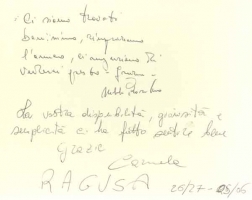 Ci siamo trovati
benissimo, ringraziamo
l'amico, ci auguriamo di
vederci presto - Grazie -
La vostra disponibilità, giovialità e
semplicità ci ha fatto sentire bene
Grazie
Carmela
RAGUSA 25/27-05/06